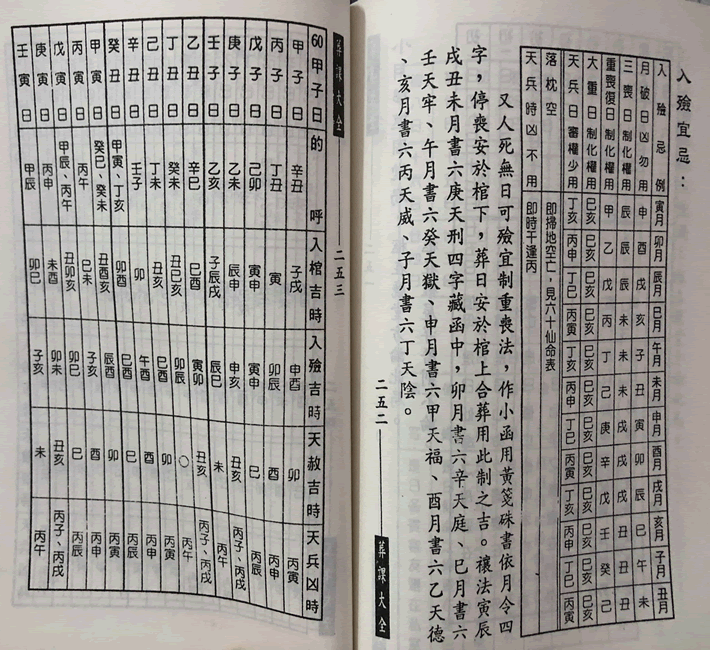 入殮宜忌：
入殮忌例 寅月 卯月 辰月 巳月 午月 未月 申月 酉月 戌月 亥月 子月 丑月
月破日凶勿用 申 酉 戌 亥 子 丑 寅 卯 辰 巳 午 未
三喪日制化權用 辰 辰 辰 未 未 未 戌 戌 戌 丑 丑 丑
重喪復日制化權用 甲 乙 戊 丙 丁 己 庚 辛 戊 壬 癸 己
大重日制化權用 巳亥 巳亥 巳亥 巳亥 巳亥 巳亥 巳亥 巳亥 巳亥 巳亥 巳亥 巳亥
天兵日審權少用 丁亥 丙申 丁巳 丙寅 丁亥 丙申 丁巳 丙寅 丁亥 丙申 丁巳 丙寅
落枕空 即掃地空亡，見六十仙命表
天兵時凶不用 即時干逢丙
又人死無日可殮宜制重喪法，作小函用黃箋硃書依月令四
字，停喪安於棺下，葬日安於棺上合葬用此制之吉。禳法寅辰
戌丑未月書六庚天刑四字藏函中，卯月書六辛天庭、巳月書六
壬天牢、午月書六癸天獄、申月書六甲天福、酉月書六乙天德
、亥月書六丙天威、子月書六丁天陰。
二五二
葬課大全
葬課大全
二五三
60甲子日的呼 入棺吉時 入殮吉時 天赦吉時 天兵凶時
甲子日 辛丑 子戌 申酉 卯 丙寅
丙子日 丁丑 寅 卯酉 酉 丙申
戊子日 己卯 寅申 寅申 巳 丙辰
庚子日 乙未 辰申 申亥 丑亥 丙子、丙戌
壬子日 乙亥 子辰戌 辰巳 未 丙午
乙丑日 辛巳 巳酉 寅卯 丑亥 丙子、丙戌
丁丑日 癸未 丑巳亥 卯辰 ○ 丙午
己丑日 丁未 丑亥 巳酉 卯 丙寅
辛丑日 壬子 卯 午酉 酉 丙申
癸丑日 甲寅、丁亥 卯酉 巳酉 巳 丙辰
甲寅日 癸巳、癸未 丑酉亥 辰酉 卯 丙寅
丙寅日 丙午 巳未 子亥 酉 丙申
戊寅日 甲辰、丙午 丑卯亥 卯巳 巳 丙辰
庚寅日 丙申 未酉 卯未 丑亥 丙子、丙戌
壬寅日 甲辰 卯巳 子亥 未 丙午